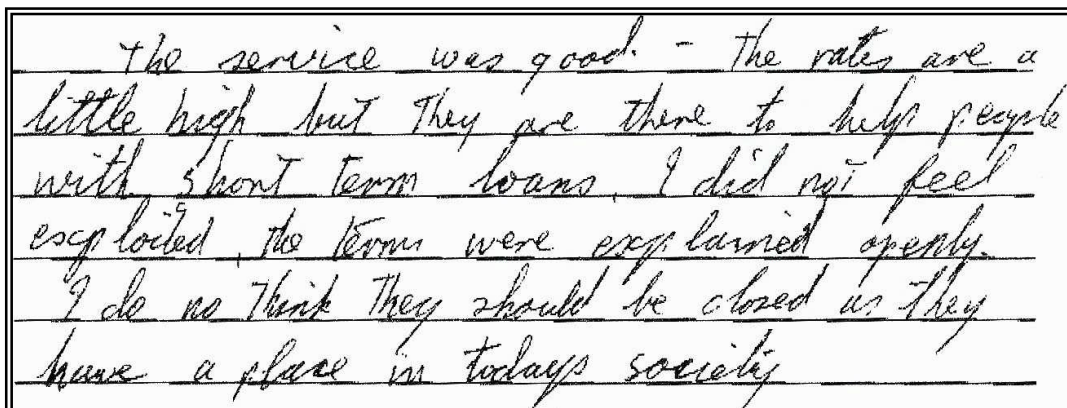 The service was good. - The rates are a
little high but They are there to help people
with short Term loans, I did not feel
exploited, the terms were explained openly.
I do no Think They should be closed as they
have a place in todays society